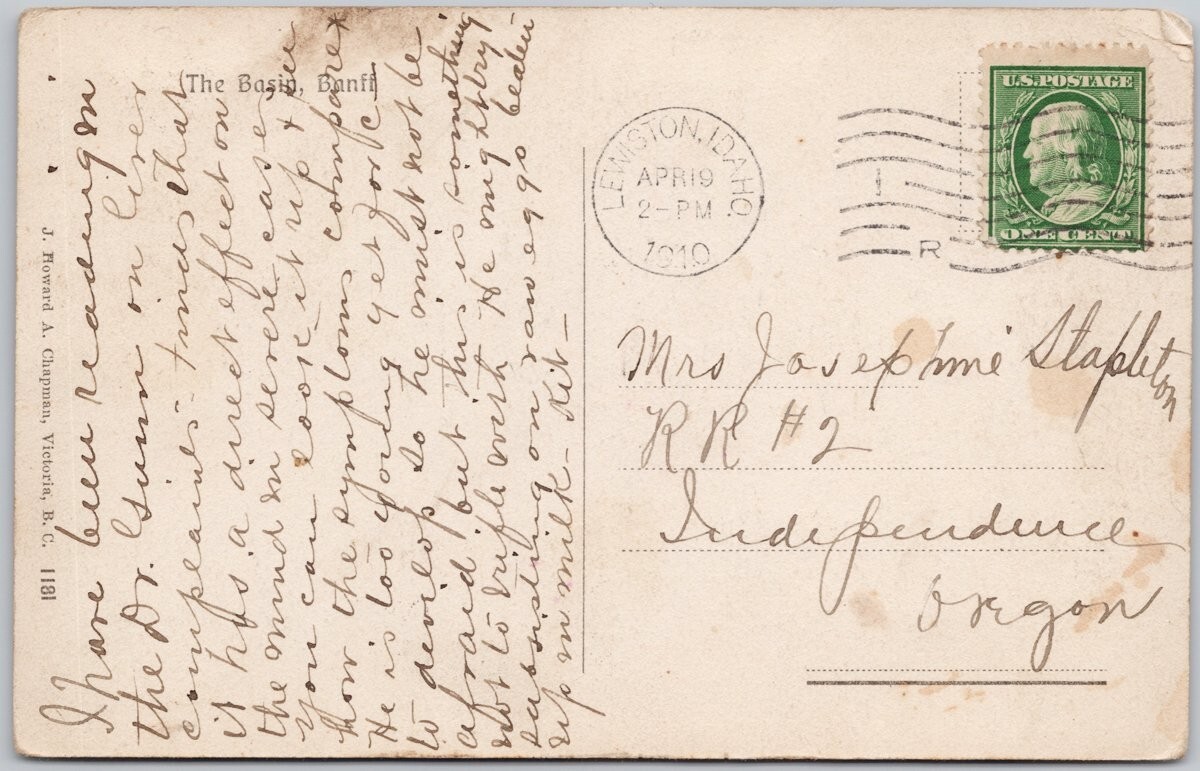 (The Basin, Banff)
J. Howard A. Chapman, Victoria, B.C. 1181
I have been reading in
the Dr. Gunn on liver
complaints - tinus that
it has a direct effect on
the mind in severe cases
You can look it up & see
how the symptoms compare x
He is too young yet for c-
to develop so he must not be
afraid but this is something
not to trifle with He ought try
subsisting on raw eggs beaten
up in milk - Kit -
LEWISTON, IDAHO.
APR 19
2-PM
1910
R
U.S. POSTAGE
ONE CENT
Mrs Josephine Stapleton
RR #2
Independence
Oregon